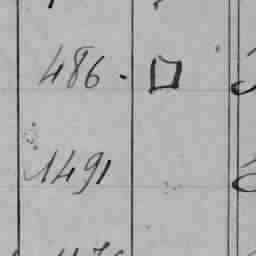 486.
1491